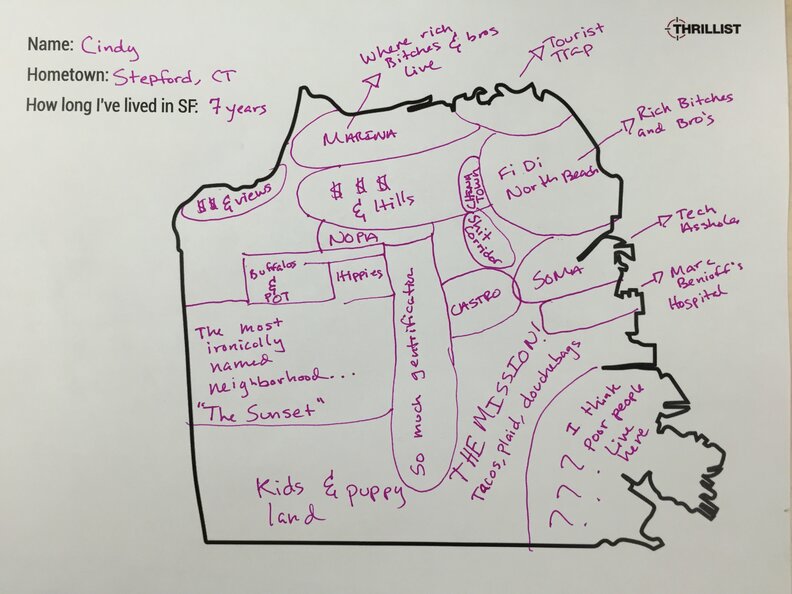 THRILLIST
Name: Cindy
Hometown: Stepford, CT
How long I've lived in SF: 7 years
Where rich
Bitches & bros
Live
Tourist
Trap
Rich Bitches
and Bro's
MARINA
$$ & views
$ $ $
& Hills
CHINA
TOWN
Fi Di
North Beach
Shit
corridor
NOPA
Tech
Asshole
SOMA
Buffalos
&
POT
Hippies
So much gentrification
CASTRO
Marc
Benioff's
Hospital
The most
ironically
named
neighborhood...
"The Sunset"
THE MISSION!
Tacos, plaid, douchebags
I think
Poor people
Live
here
? ? ?
Kids & puppy
land